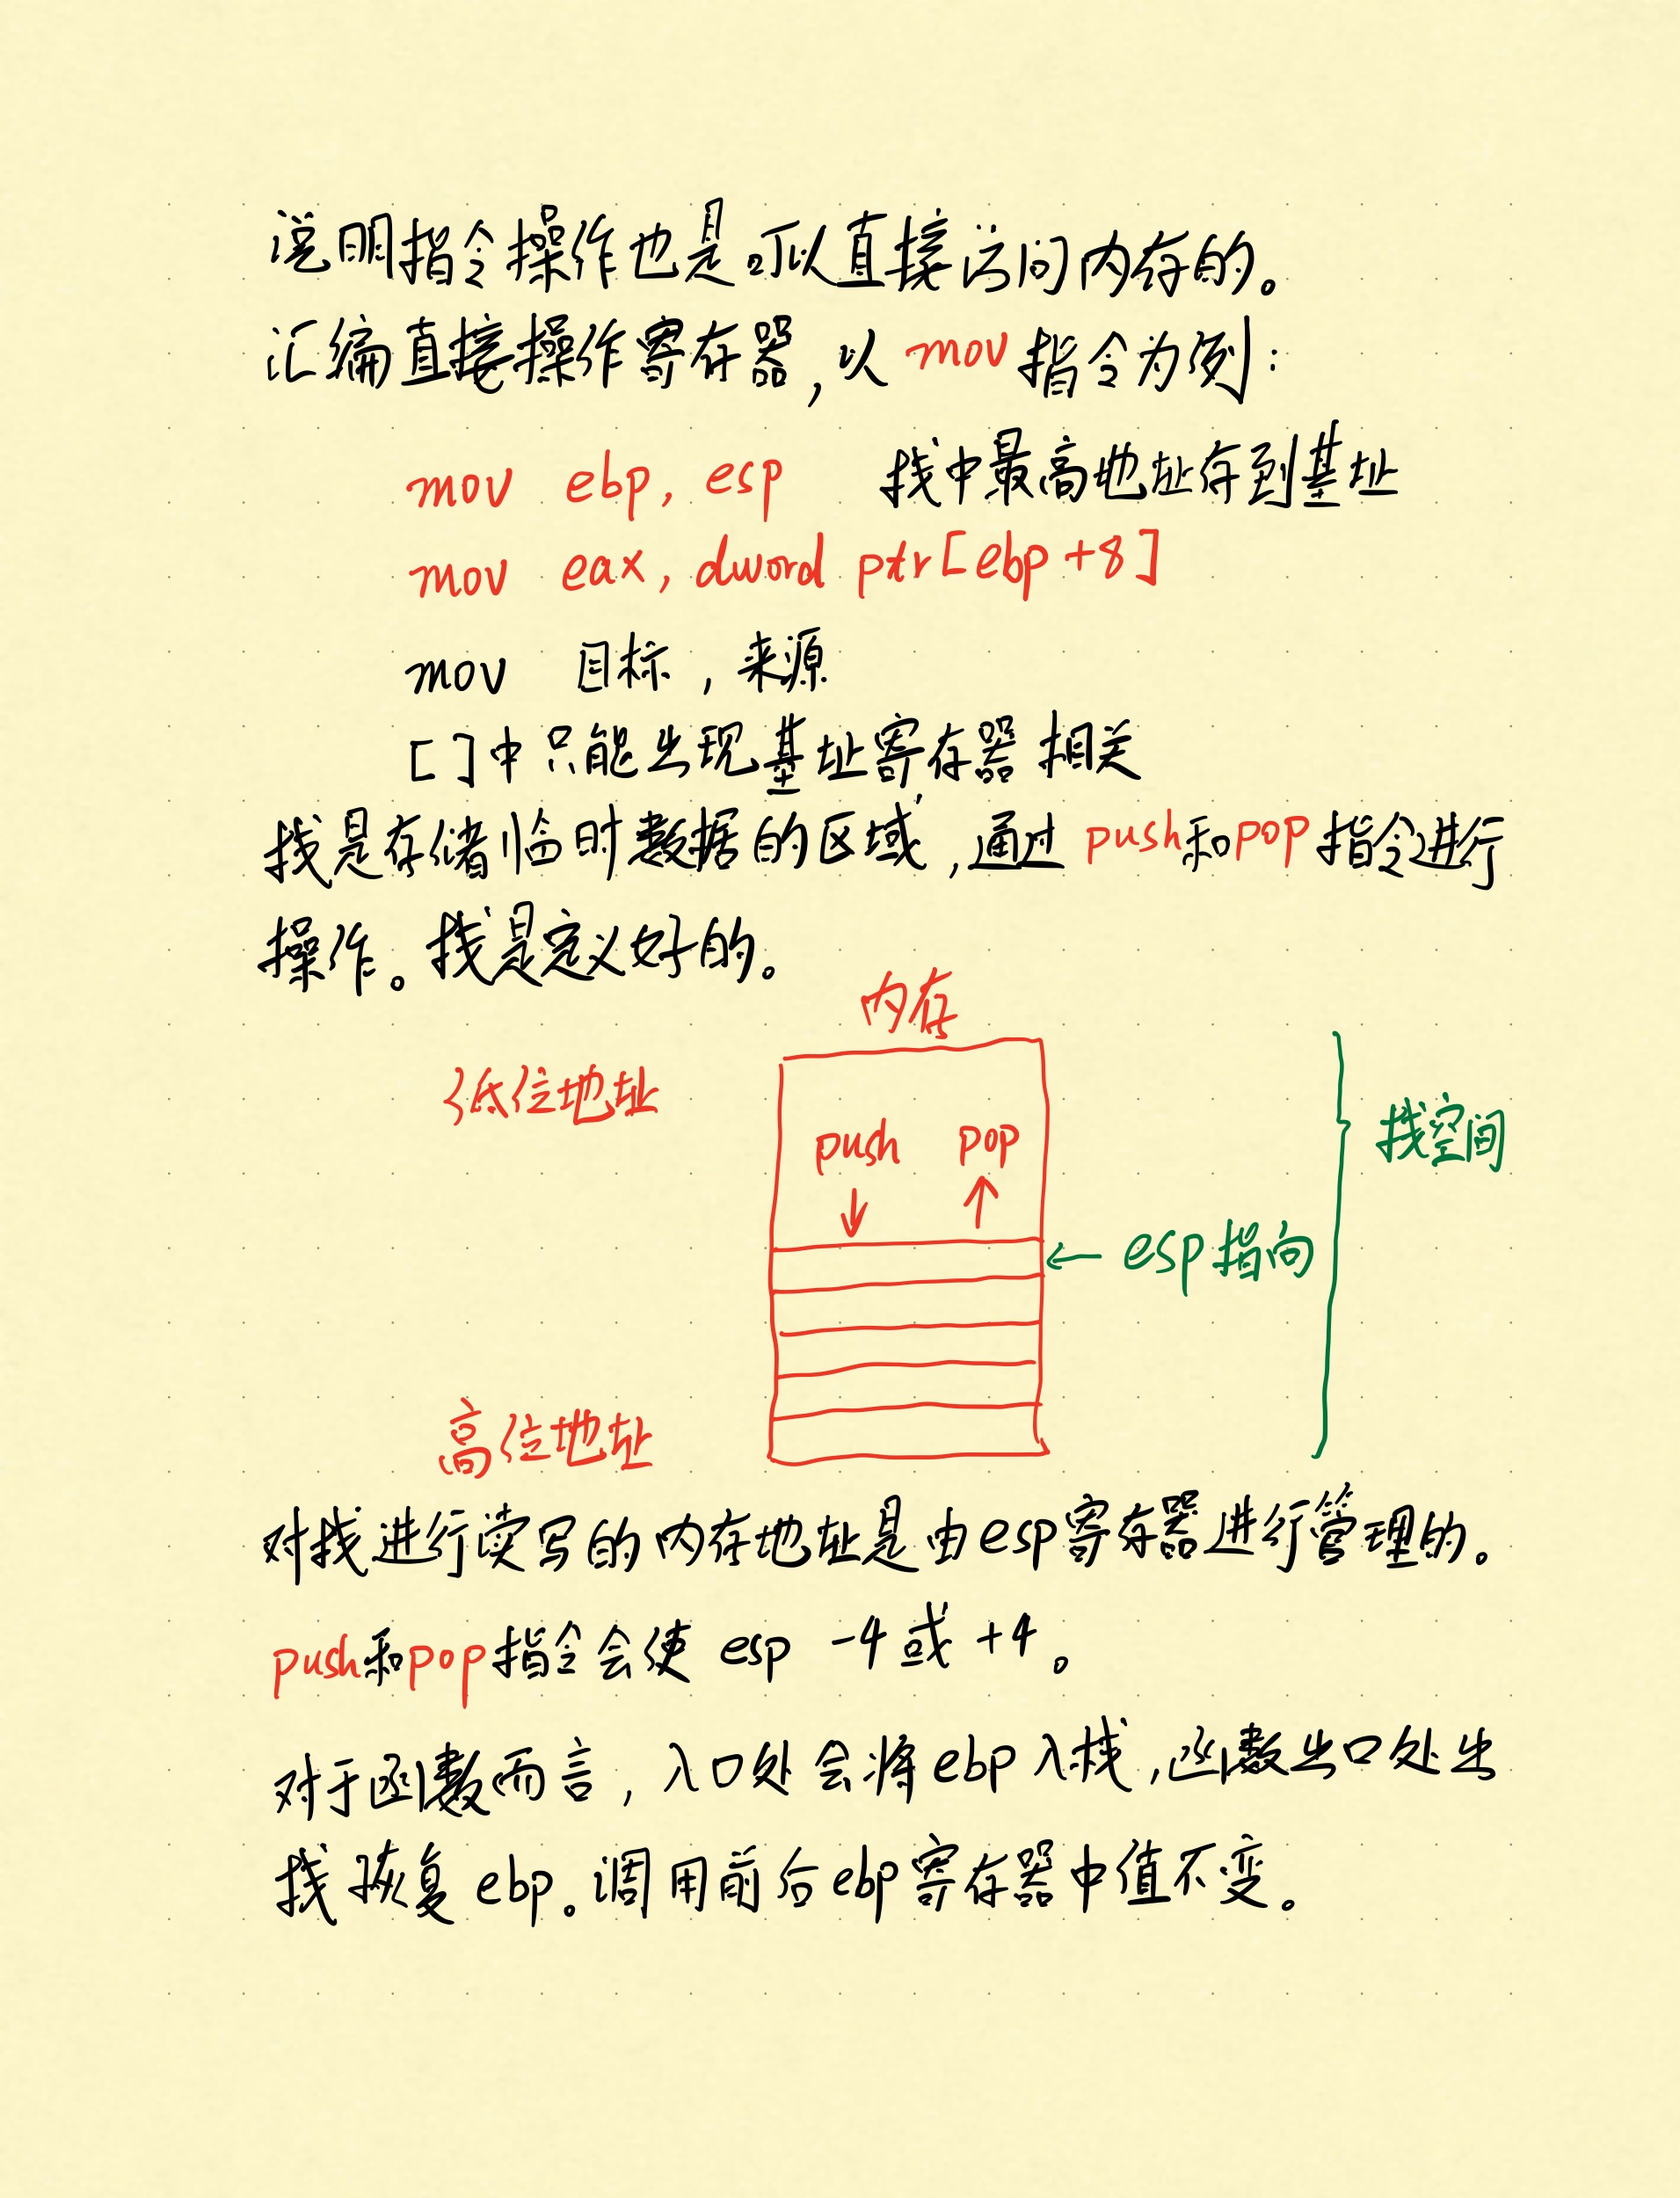 说明指令操作也是可以直接访问内存的。
汇编直接操作寄存器,以 mov 指令为例:
mov ebp, esp 栈中最高地址存到基址
mov eax, dword ptr[ebp+8]
mov 目标,来源
[]中只能出现基址寄存器相关
栈是存储临时数据的区域,通过push和pop指令进行
操作。栈是定义好的。
内存
低位地址
push pop
栈空间
← esp指向
高位地址
对栈进行读写的内存地址是由esp寄存器进行管理的。
push和pop指令会使 esp -4或+4。
对于函数而言,入口处会将ebp入栈,函数出口处出
栈恢复ebp。调用前后ebp寄存器中值不变。